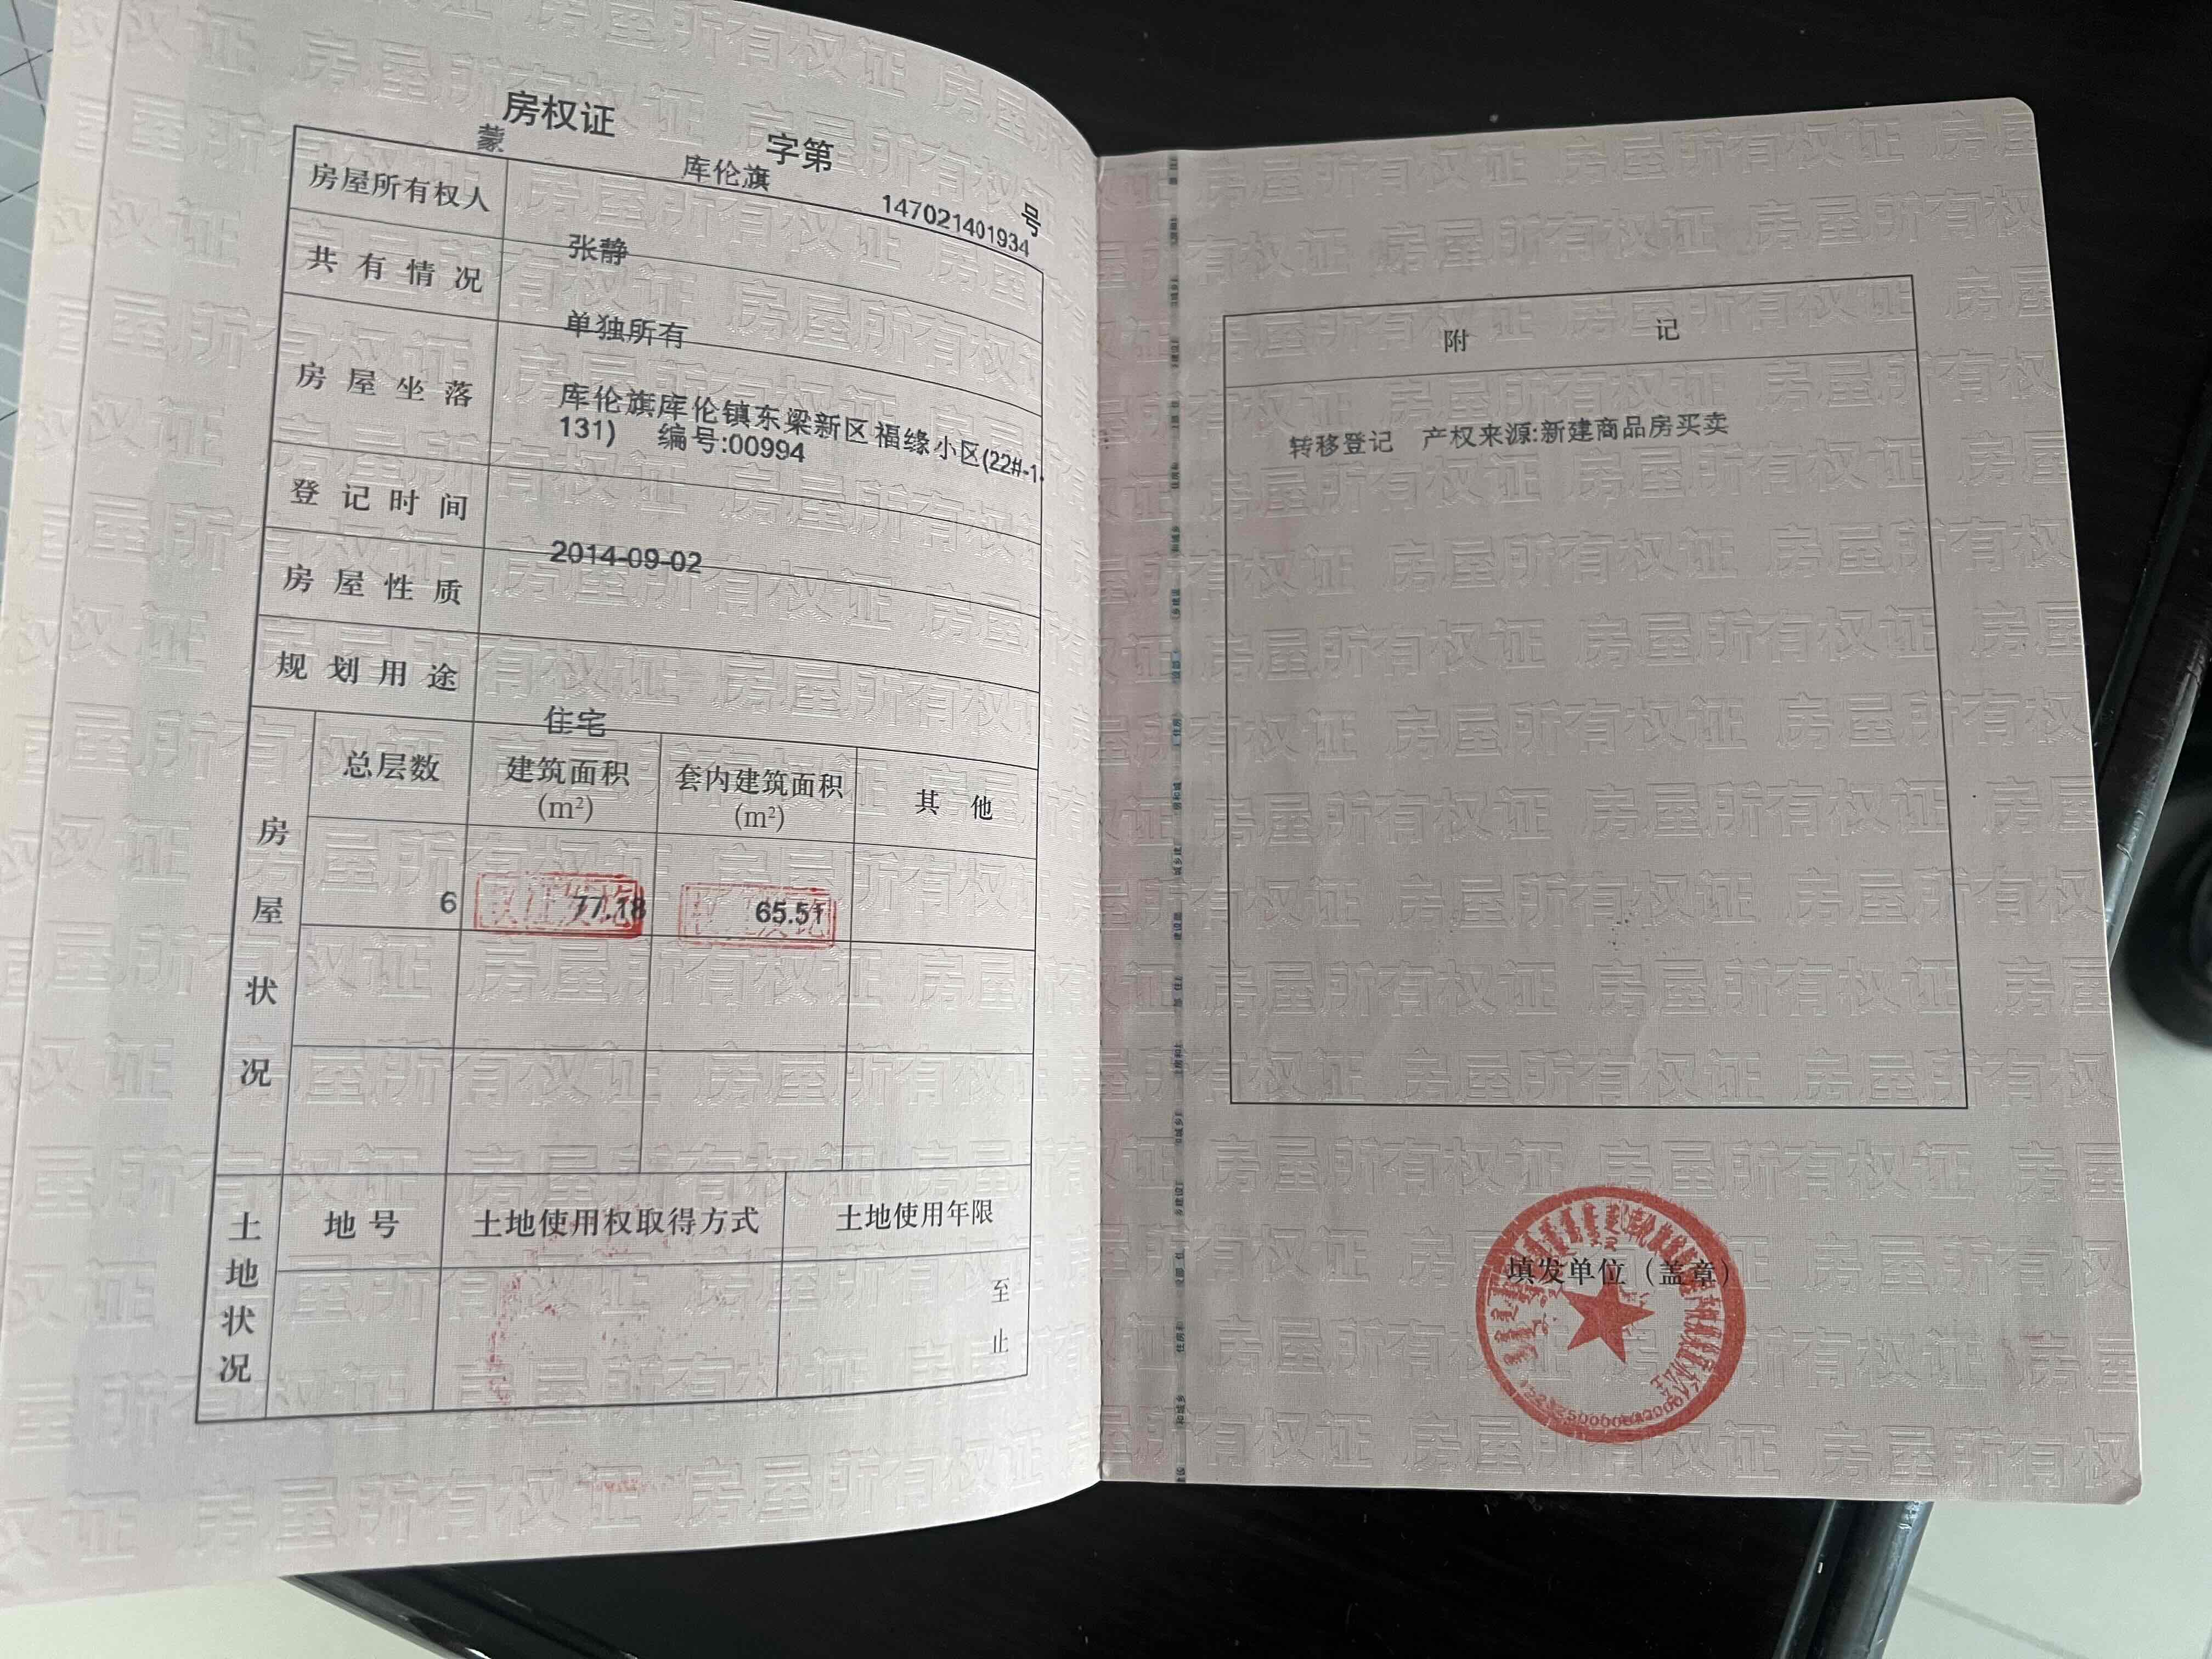 房权证 字第 号
蒙 库伦旗 147021401934
房屋所有权人
张静
共有情况
单独所有
房屋坐落
库伦旗库伦镇东梁新区福缘小区(22#-1-
131) 编号:00994
登记时间
2014-09-02
房屋性质
规划用途
住宅
房屋状况
总层数 建筑面积(m²) 套内建筑面积(m²) 其他
6 77.18 65.51
土地状况
地号 土地使用权取得方式 土地使用年限
至
止
附记
转移登记 产权来源:新建商品房买卖
填发单位（盖章）